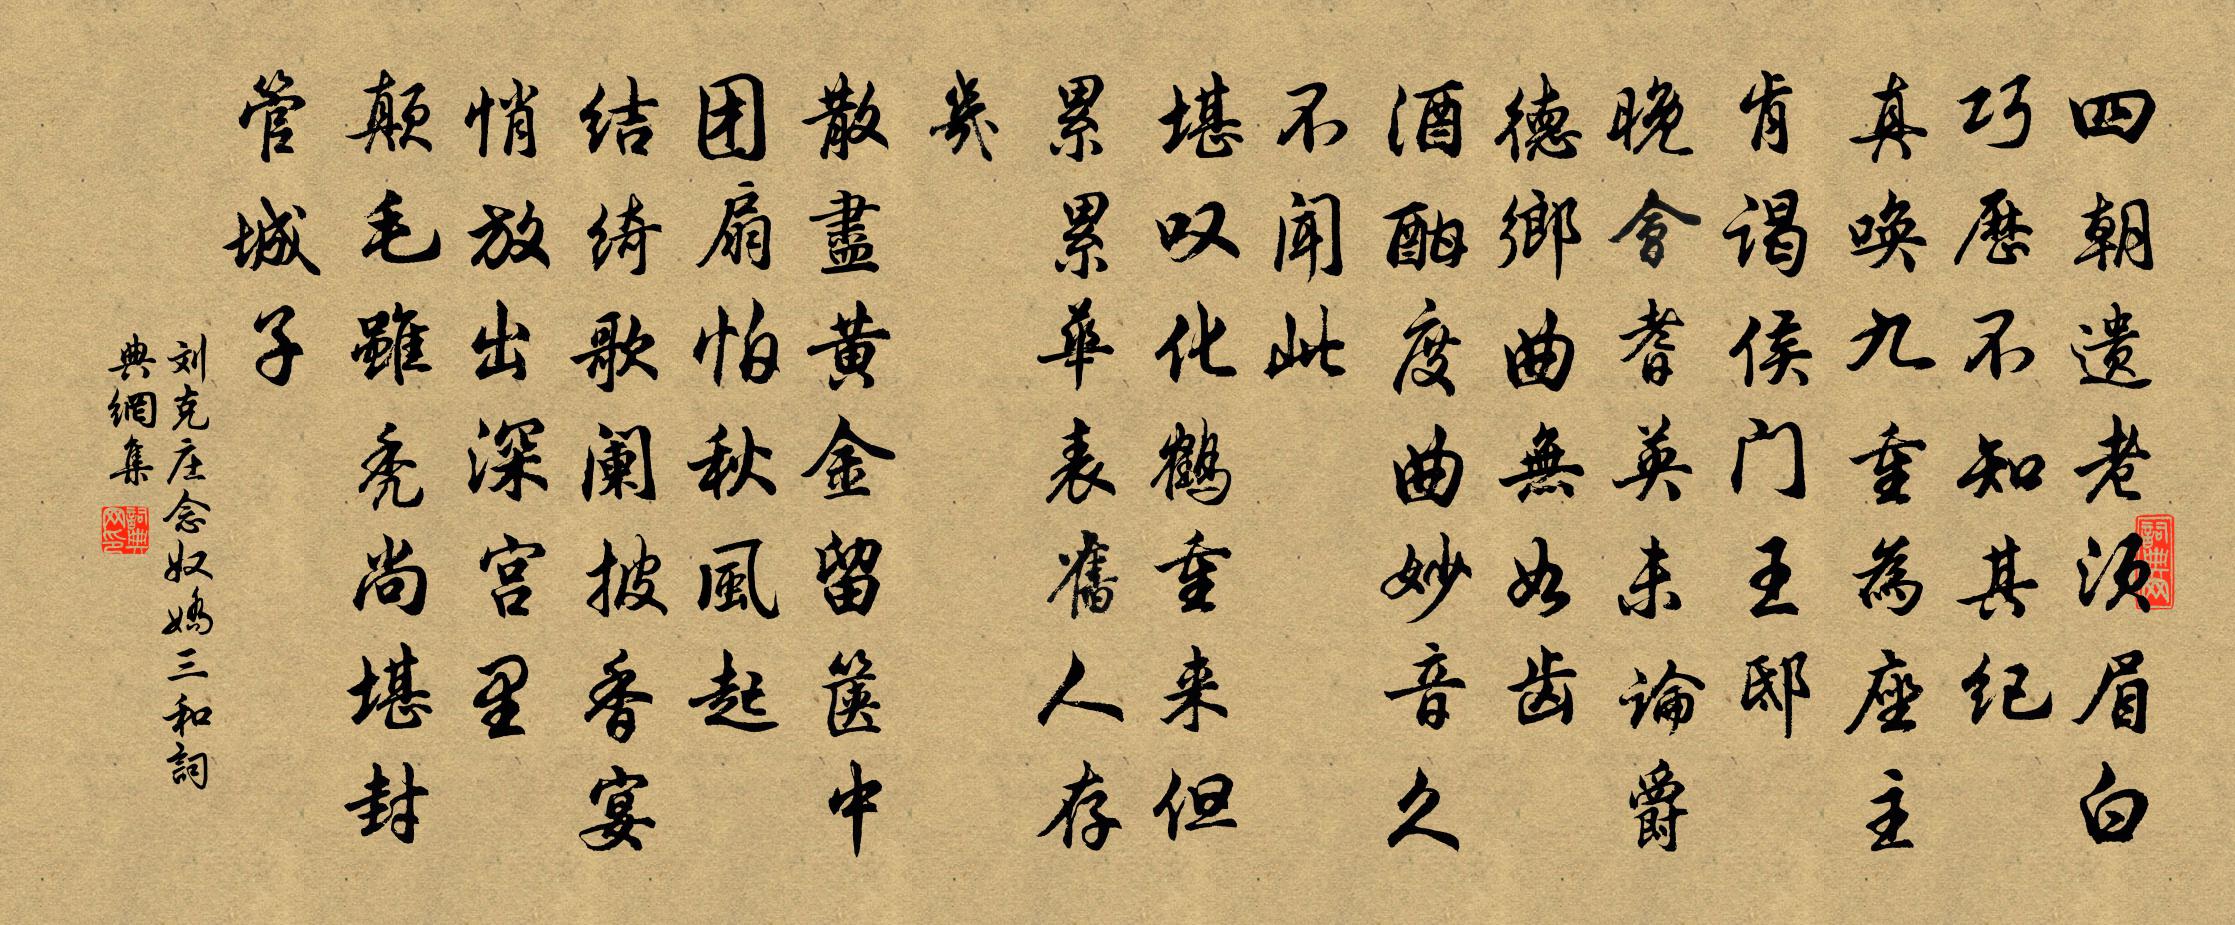 四朝遗老须眉白
巧曆不知其纪
真唤九重為座主
肯谒侯门王邸
晚會耆英未論爵
德鄉曲無如齿
酒酣度曲妙音久
不闻此
堪叹化鹤重来但
累累華表舊人存
幾
散盡黄金留箧中
团扇怕秋風起
结绮歌阑披香宴
悄放出深宫里
颠毛雖秃尚堪封
管城子
刘克庄念奴嬌三和詞
典網集
詞典网
詞典网印